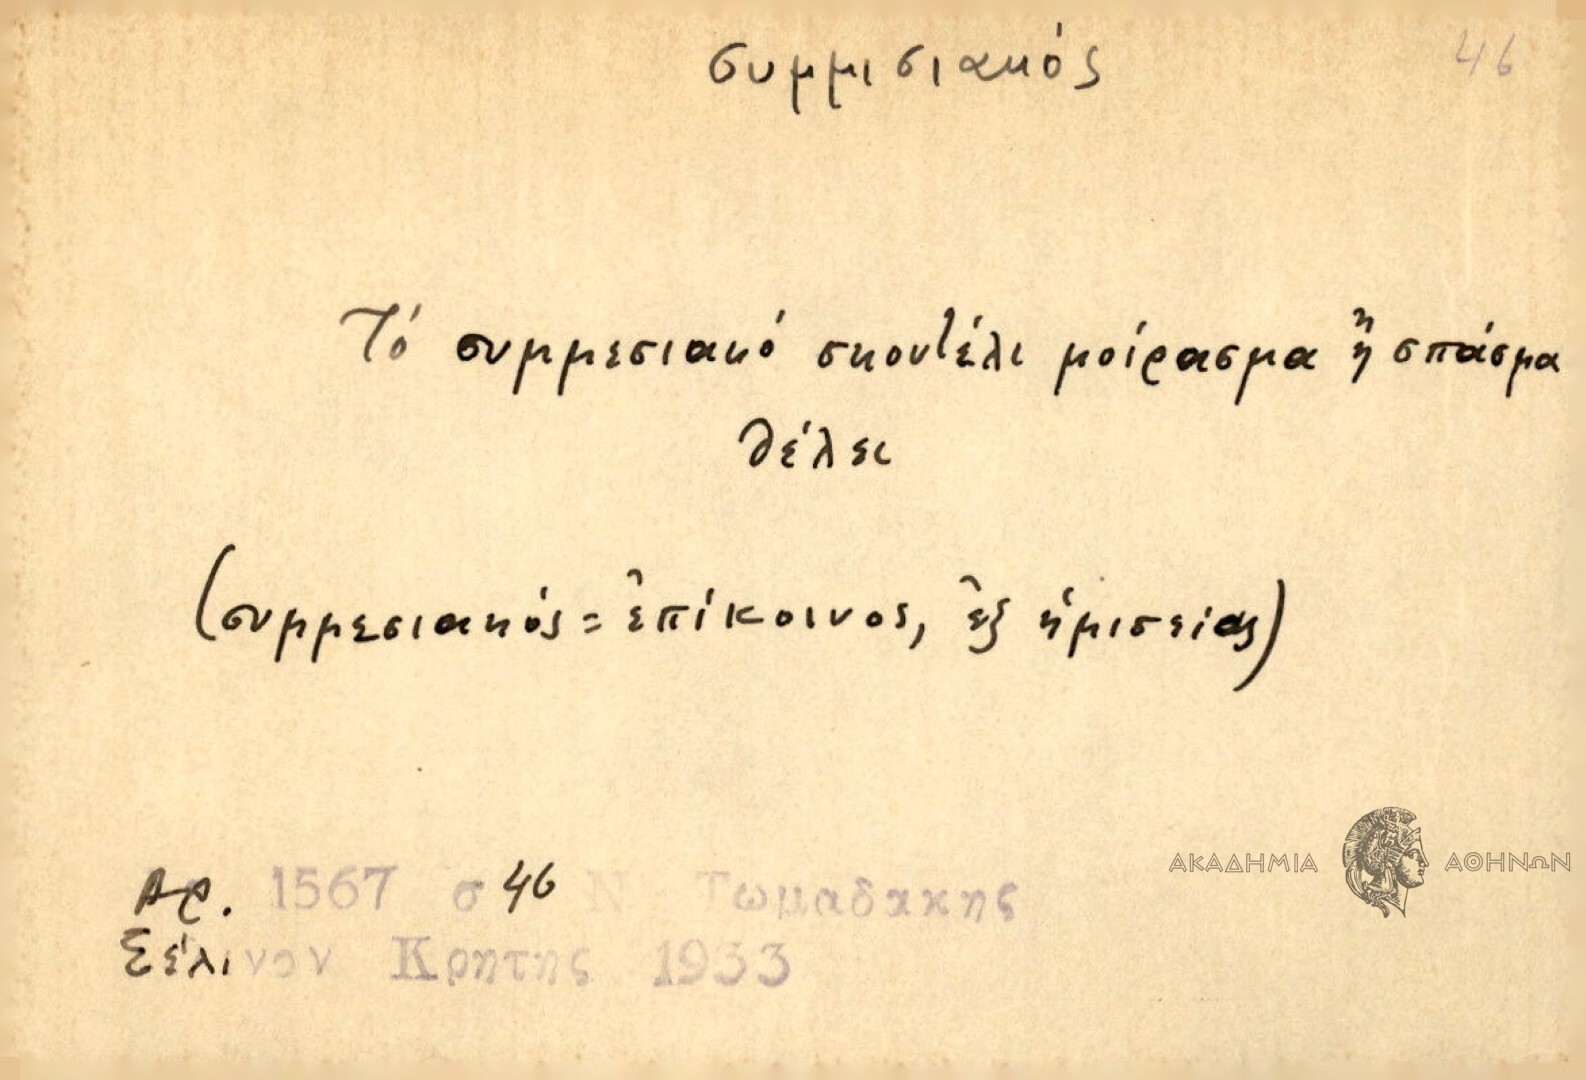 συμμισιακός 46
Τό συμμεσιακό σκουτέλι μοίρασμα ἤ σπάσμα
θέλει
(συμμεσιακός = ἐπίκοινος, ἐξ ἡμισείας)
ΑΚΑΔΗΜΙΑ ΑΘΗΝΩΝ
Αρ. 1567 σ 46 Ν. Τωμαδακης
Σέλινον Κρητης 1933